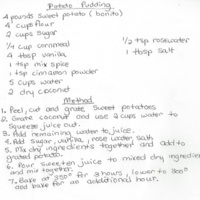 Potato Pudding
4 pounds sweet potato (boniato)
4 cups flour
2 cups sugar
1/4 cup cornmeal
4 tbsp vanilla
1 tsp mix spice
1 tsp cinnamon powder
5 cups water
2 dry coconut
1/2 tsp rosewater
1 tsp salt
Method
1. Peel, cut and grate sweet potatoes
2. Grate coconut and use 2 cups water to
squeeze juice out.
3. Add remaining water to juice.
4. Add sugar, vanilla, rose water, salt
5. Mix dry ingredients together and add to
grated potato.
6. Pour sweeten juice to mixed dry ingredien
and mix together.
7. Bake at 350° for 2 hours, lower to 300°
and bake for an additional hour.